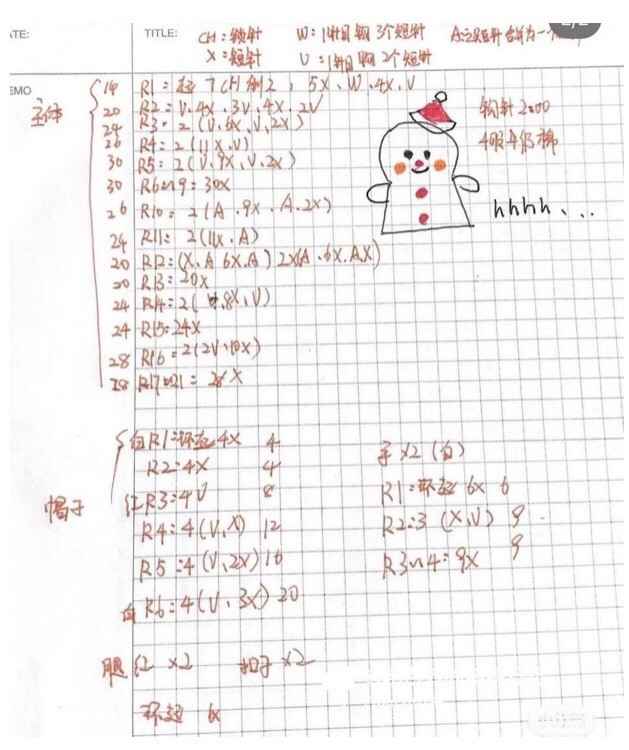 TITLE: CH：锁针 W：1针目钩3个短针 A：2短针合并为一个
X：短针 V：1针目钩2个短针
主体
14 R1：起7CH 倒2，5X、W、4X、V
20 R2：V、4X、3V、4X、2V
24 R3：2（V、6X、V、2X）
26 R4：2（11X、V）
30 R5：2（V、9X、V、2X）
30 R6~9：30X
26 R10：2（A、9X、A、2X）
24 R11：2（11X、A）
20 R12：（X、A 6X、A）2X（A、6X、A、X）
20 R13：20X
24 R14：2（V、8X、V）
24 R15：24X
28 R16：2（2V、10X）
28 R17~21：28X
钩针2.00
4股牛奶棉
hhhh、...
帽子
白R1：环起4X 4
R2：4X 4
红R3：4V 8
R4：4（V、X）12
R5：4（V、2X）16
白R6：4（V、3X）20
手X2（白）
R1：环起6X 6
R2：3（X、V）9
R3~4：9X 9
腿 红 X2 扣子X2
环起 6X